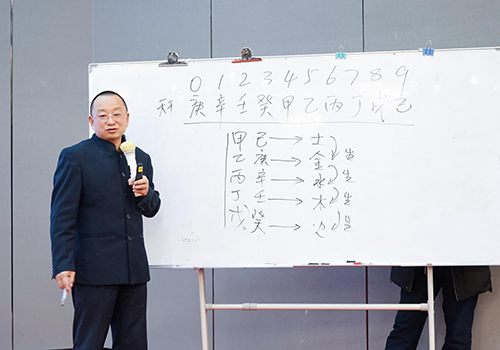 0 1 2 3 4 5 6 7 8 9
天干 庚 辛 壬 癸 甲 乙 丙 丁 戊 己
甲 己 → 土
乙 庚 → 金 生
丙 辛 → 水 生
丁 壬 → 木 生
戊 癸 → 火 生